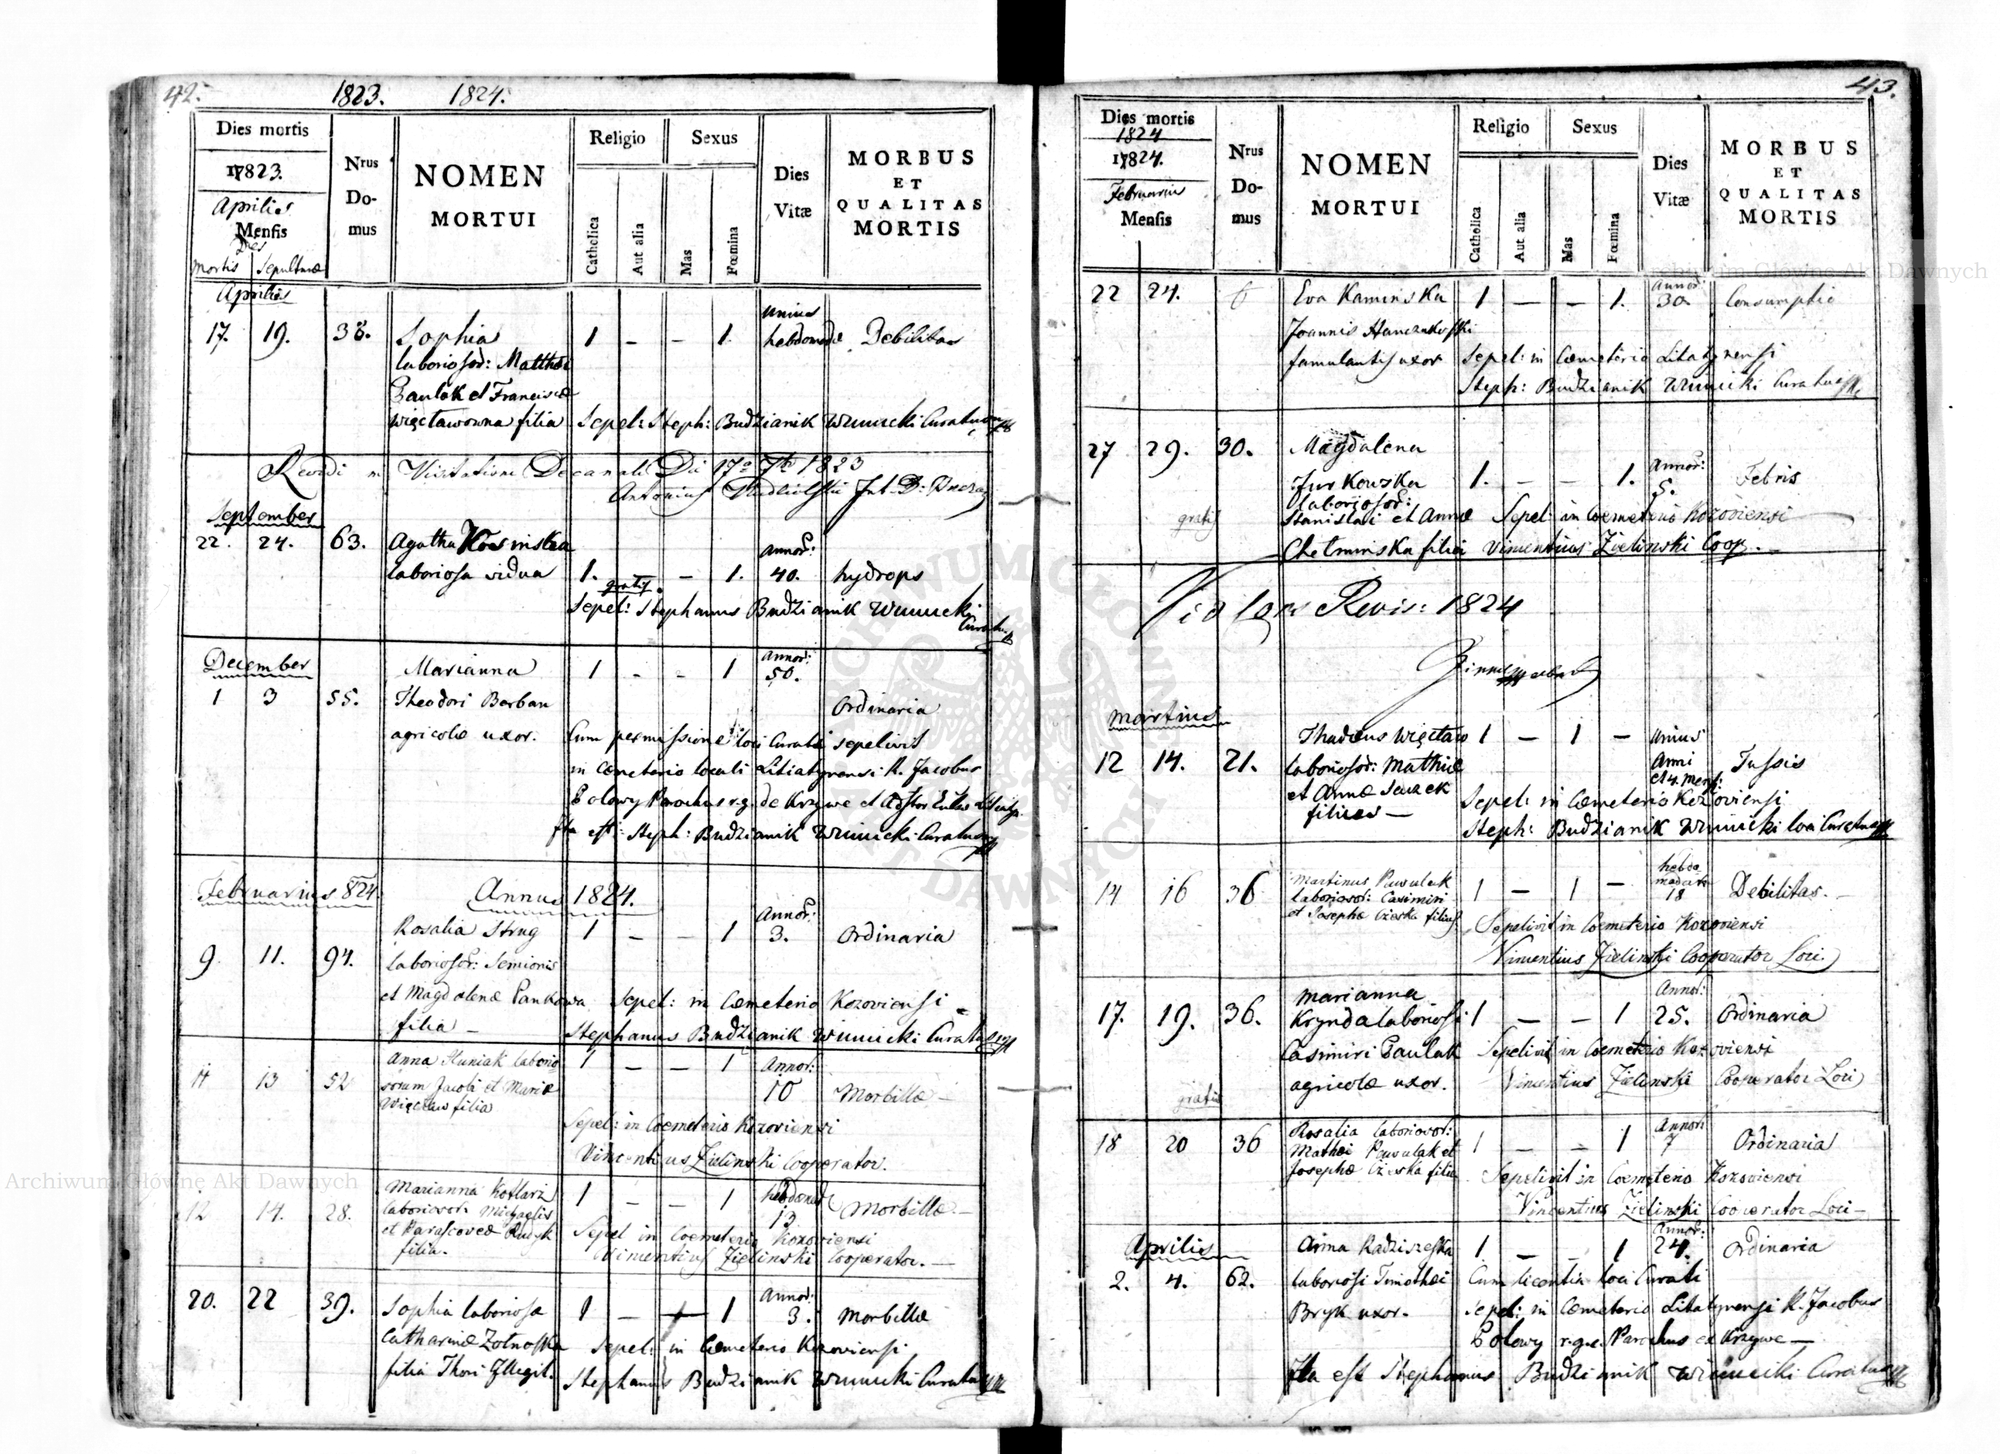 42. 1823. 1824.
Dies mortis
17823.
Aprilis
Mensis
Dies
mortis Sepulturæ
Nrus Do-mus
NOMEN
MORTUI
Religio
Catholica
Aut alia
Sexus
Mas
Fœmina
Dies
Vitæ
MORBUS
ET
QUALITAS
MORTIS
Aprilis
17. 19. 38. Sophia 1 – – 1. unius hebdomadæ Debilitas
laboriosor: Matthæi
Paulak et Franciscæ
Więcławowna filia Sepel: Steph: Budzianik Winnicki Curatus
Visitatione Decanali Die 17a 7bris 1823
Antonius
September
22. 24. 63. Agatha
laboriosa vidua 1. – 1. Annor: 40. hydrops
gratis.
Sepel: Stephanus Budzianik Winnicki
Curatus
December Marianna 1 - - 1 Annor: 50.
1 3 55. Theodori Barban Ordinaria
agricolæ uxor. Cum permissione loci Curati sepelivit
in Cæmeterio locali Litiatynensi R. Jacobus
Polowy Parochus r.g. de Krzywe et
Ita est: Steph: Budzianik Winnicki Curatus
Februarius 824 Annus 1824.
Rosalia Strug 1 – – 1 Annor: 3. Ordinaria
9. 11. 94. laboriosor: Semionis
et Magdalenæ Pankowa Sepel: in Cæmeterio Kozoviensi
filia – Stephanus Budzianik Winnicki Curatus
Anna Huniak laborio- 1 – – 1 Annor:
11 13 52 sorum Jacobi et Mariæ 10 Morbillæ –
Więcław filia
Sepel: in Coemeterio Kozoviensi
Vincentius Zielinski Cooperator.
Marianna Kotlarz 1 – – 1 hebdomad:
12 14. 28. laboriosor: Michaelis 13 Morbillæ –
et Parascevæ Rudyk Sepel in Coemeterio Kozoviensi
filia. Vincentius Zielinski Cooperator. –
20. 22 39. Sophia laboriosæ 1 – 1 Annor: 3. Morbillæ
Catharinæ Zotnoska Sepel: in Cæmeterio Kozoviensi
filia Thori Illegit. Stephanus Budzianik Winnicki Curatus
43.
Dies mortis
1824
17824.
Februarius
Mensis
Nrus
Do-
mus
NOMEN
MORTUI
Religio
Catholica
Aut alia
Sexus
Mas
Fœmina
Dies
Vitæ
MORBUS
ET
QUALITAS
MORTIS
22 24. 6 Eva Kaminska 1 – – 1. Annor: 30. Consumptio
Joannis
famulantis uxor Sepel: in Cæmeterio Litatynensi
Steph: Budzianik Winnicki Curatus
27 29. 30. Magdalena
Jurkowska 1. – – 1. Annor: 5. Febris
laboriosor:
gratis Stanislai et Annæ Sepel in Coemeterio Kozoviensi
Chelminska filia Vincentius Zielinski Coop. –
Revis: 1824
Martius
12 14. 21. Thadæus Więcław 1 – 1 – unius anni et 4. mens: Tussis
laboriosor: Mathiæ
et Annæ Senzek Sepel: in Cæmeterio Kozoviensi
filius – Steph: Budzianik Winnicki loci Curatus
14 16 36 Martinus Pawulak 1 – 1 – hebdomadar: 18 Debilitas. –
laboriosor: Casimiri
et Josephæ Cieska filius Sepelivit in Coemeterio Kozoviensi
Vincentius Zielinski Cooperator Loci.
17. 19. 36. Marianna
Krynda laboriosi 1 – – 1 Annor: 25. Ordinaria
Casimiri Paulak Sepelivit in Coemeterio Kozoviensi
agricolæ uxor. Vincentius Zielinski Cooperator Loci
gratis
18 20 36 Rosalia laboriosor: 1 – – 1 Annor: 7 Ordinaria
Mathæi Pawulak et
Josephæ Cieska filia Sepelivit in Coemeterio Kozoviensi
Vincentius Zielinski Cooperator Loci –
Aprilis Anna Radziszeska 1. – – 1 Annor: 24. Ordinaria
2. 4. 62. laboriosi Timothei Cum licentia loci Curati
Bryk uxor. Sepel: in Cæmeterio Litatynensi R. Jacobus
Polowy r.g. Parochus ex Krzywe –
Ita est Stephanus Budzianik Winnicki Curatus
Archiwum Główne Akt Dawnych
Archiwum Główne Akt Dawnych
ARCHIWUM GŁÓWNE AKT DAWNYCH